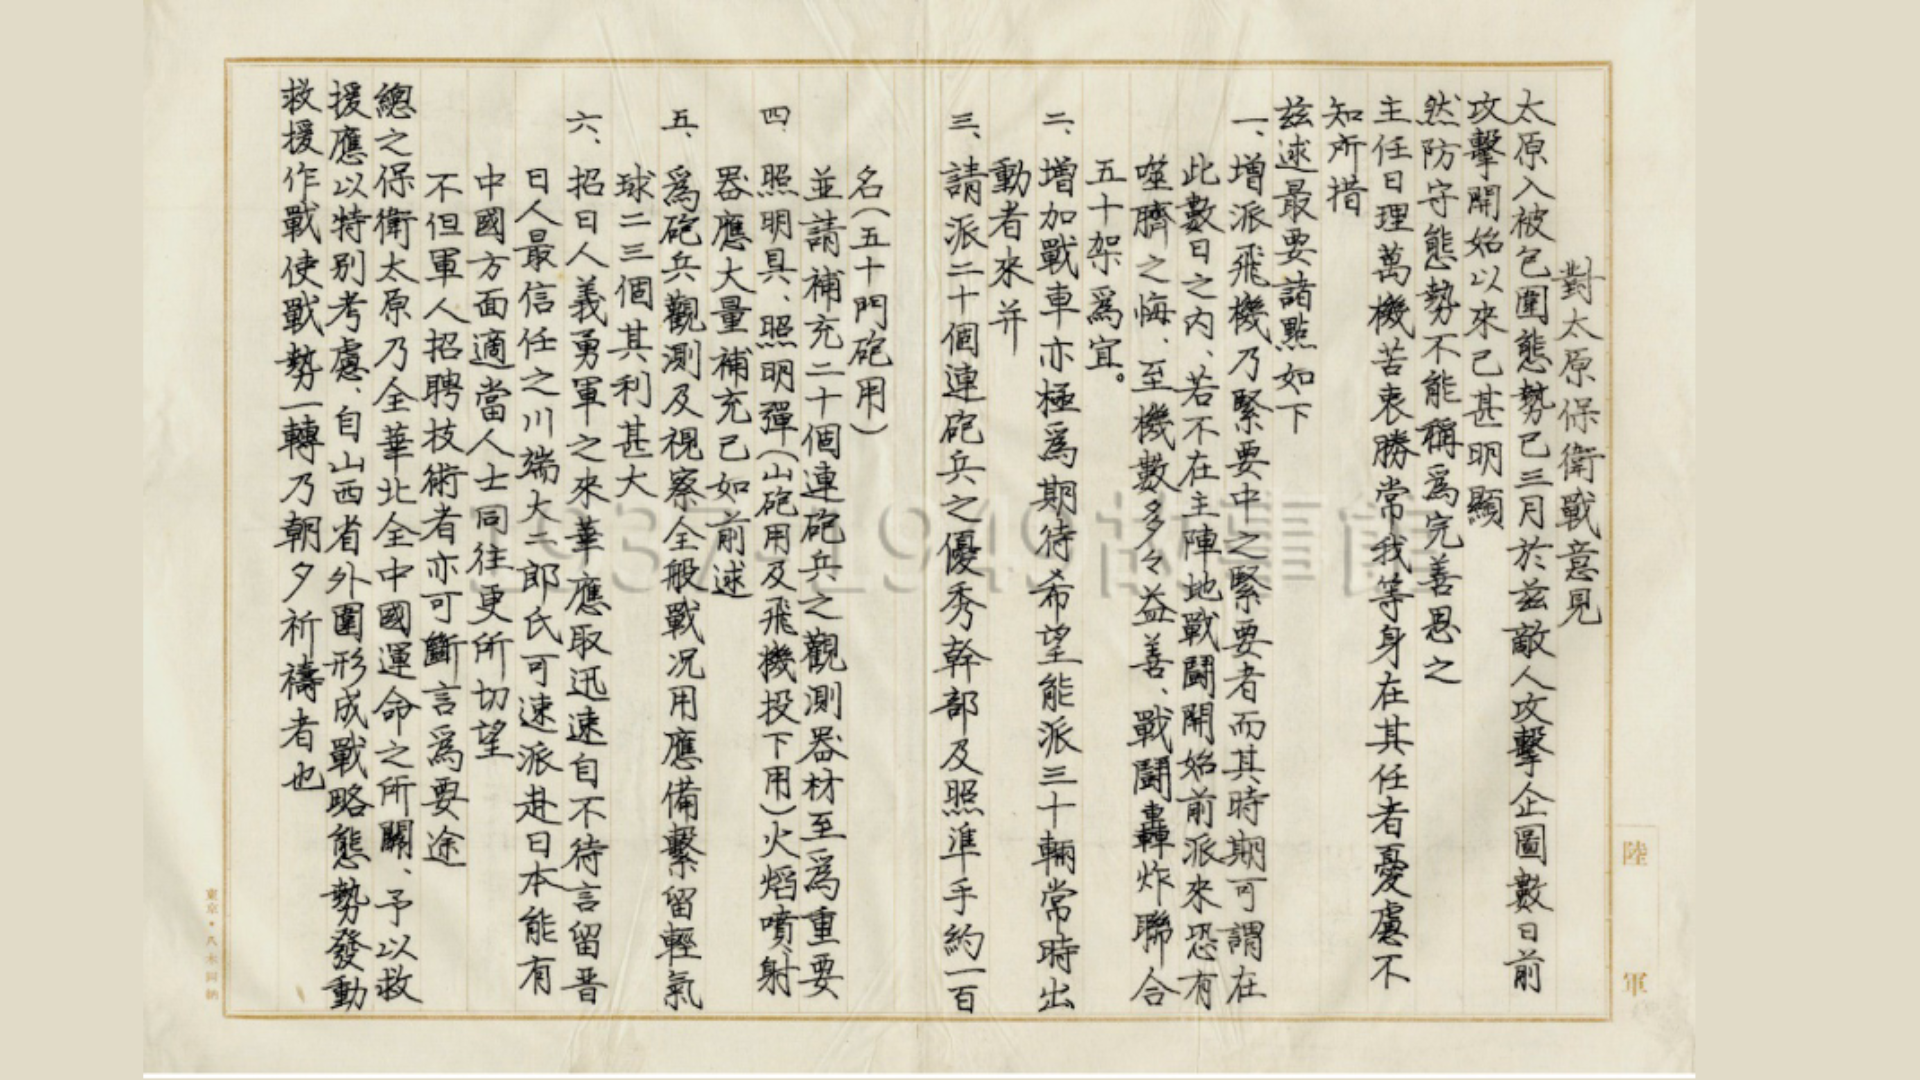 對太原保衛戰意見
太原入被包圍態勢已三月於茲敵人攻擊企圖數日前
攻擊開始以來已甚明顯
然防守態勢不能稱爲完善思之
主任日理萬機苦衷勝常我等身在其任者憂慮不
知所措
茲述最要諸點如下
一、增派飛機乃緊要中之緊要者而其時期可謂在
此數日之內、若不在主陣地戰鬪開始前派來恐有
噬臍之悔、至機數多々益善、戰鬪轟炸聯合
五十架爲宜。
二、增加戰車亦極爲期待希望能派三十輛常時出
動者來并
三、請派二十個連砲兵之優秀幹部及照準手約一百
名(五十門砲用)
並請補充二十個連砲兵之觀測器材至爲重要
四、照明具、照明彈(山砲用及飛機投下用)火焰噴射
器應大量補充已如前述
五、爲砲兵觀測及視察全般戰況用應備繫留輕氣
球二三個其利甚大
六、招日人義勇軍之來華應取迅速自不待言留晋
日人最信任之川端大二郎氏可速派赴日本能有
中國方面適當人士同往更所切望
不但軍人招聘技術者亦可斷言爲要途
總之保衛太原乃全華北全中國運命之所關、予以救
援應以特別考慮、自山西省外圍形成戰略態勢發動
救援作戰使戰勢一轉乃朝夕祈禱者也
陸軍
1937-1949故事館